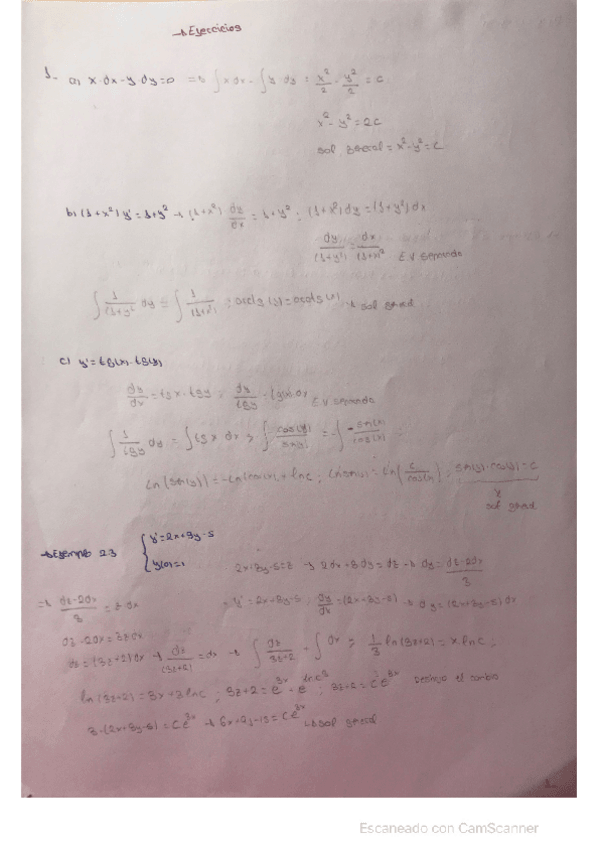 → Ejercicios
1.- a) x·dx - y·dy = 0 ⇒ ∫x dx - ∫y dy = x²/2 - y²/2 = c
x² - y² = 2c
sol general = x² - y² = c
b) (1+x²) y' = 1+y² → (1+x²) dy/dx = 1+y² ; (1+x²) dy = (1+y²) dx
dy/(1+y²) = dx/(1+x)² E.V separada
∫ 1/(1+y² dy = ∫ 1/(1+x²) ; arctg(y) = arctg(x) → sol gral
c) y' = tg(x)·tg(y)
dy/dx = tgx·tgy ; dy/tgy = tg(x)·dx E.V separada
∫ 1/tgy dy = ∫ tgx dx ; ∫ cos(y)/sin(y) = -∫ -sin(x)/cos(x)
Ln(sin(y)) = -Ln(cos(x)) + lnc ; Ln(sin(y)) = Ln(c/cos(x)) ; sin(y)·cos(x) = c
sol gral
→ Ejemplo 2.3 { y' = 2x+3y-5
y(0)=1 2x+3y-5=z → 2dx+3dy=dz → dy = (dz-2dx)/3
⇒ (dz-2dx)/3 = z·dx y' = 2x+3y-5 ; dy/dx = (2x+3y-5) → dy = (2x+3y-5) dx
dz - 2dx = 3zdx
dz = (3z+2) dx → dz/(3z+2) = dx → ∫ dz/3z+2 = ∫ dx ; 1/3 ln(3z+2) = x·lnc ;
ln(3z+2) = 3x+3lnc ; 3z+2 = e^3x · e^lnc³ ; 3z+2 = Ce^3x Deshago el cambio
3·(2x+3y-5) = Ce^3x → 6x+9y-15 = Ce^3x → sol general
Escaneado con CamScanner